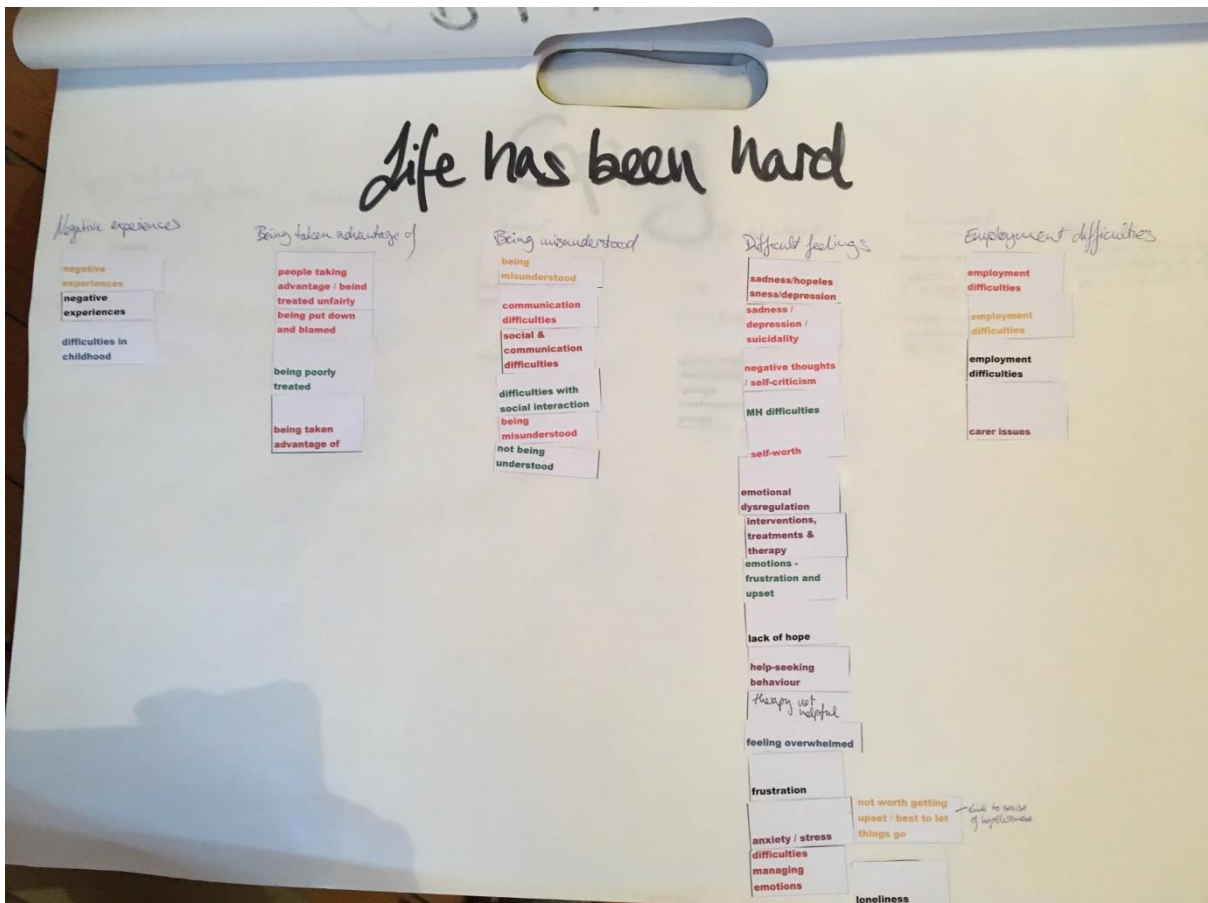 Life has been hard
Negative experiences
negative
experiences
negative
experiences
difficulties in
childhood
Being taken advantage of
people taking
advantage / beind
treated unfairly
being put down
and blamed
being poorly
treated
being taken
advantage of
Being misunderstood
being
misunderstood
communication
difficulties
social &
communication
difficulties
difficulties with
social interaction
being
misunderstood
not being
understood
Difficult feelings
sadness/hopeles
sness/depression
sadness /
depression /
suicidality
negative thoughts
/ self-criticism
MH difficulties
self-worth
emotional
dysregulation
interventions,
treatments &
therapy
emotions -
frustration and
upset
lack of hope
help-seeking
behaviour
therapy not
helpful
feeling overwhelmed
frustration
anxiety / stress
difficulties
managing
emotions
not worth getting
upset / best to let
things go
link to sense
of hopelessness
loneliness
Employment difficulties
employment
difficulties
employment
difficulties
employment
difficulties
carer issues